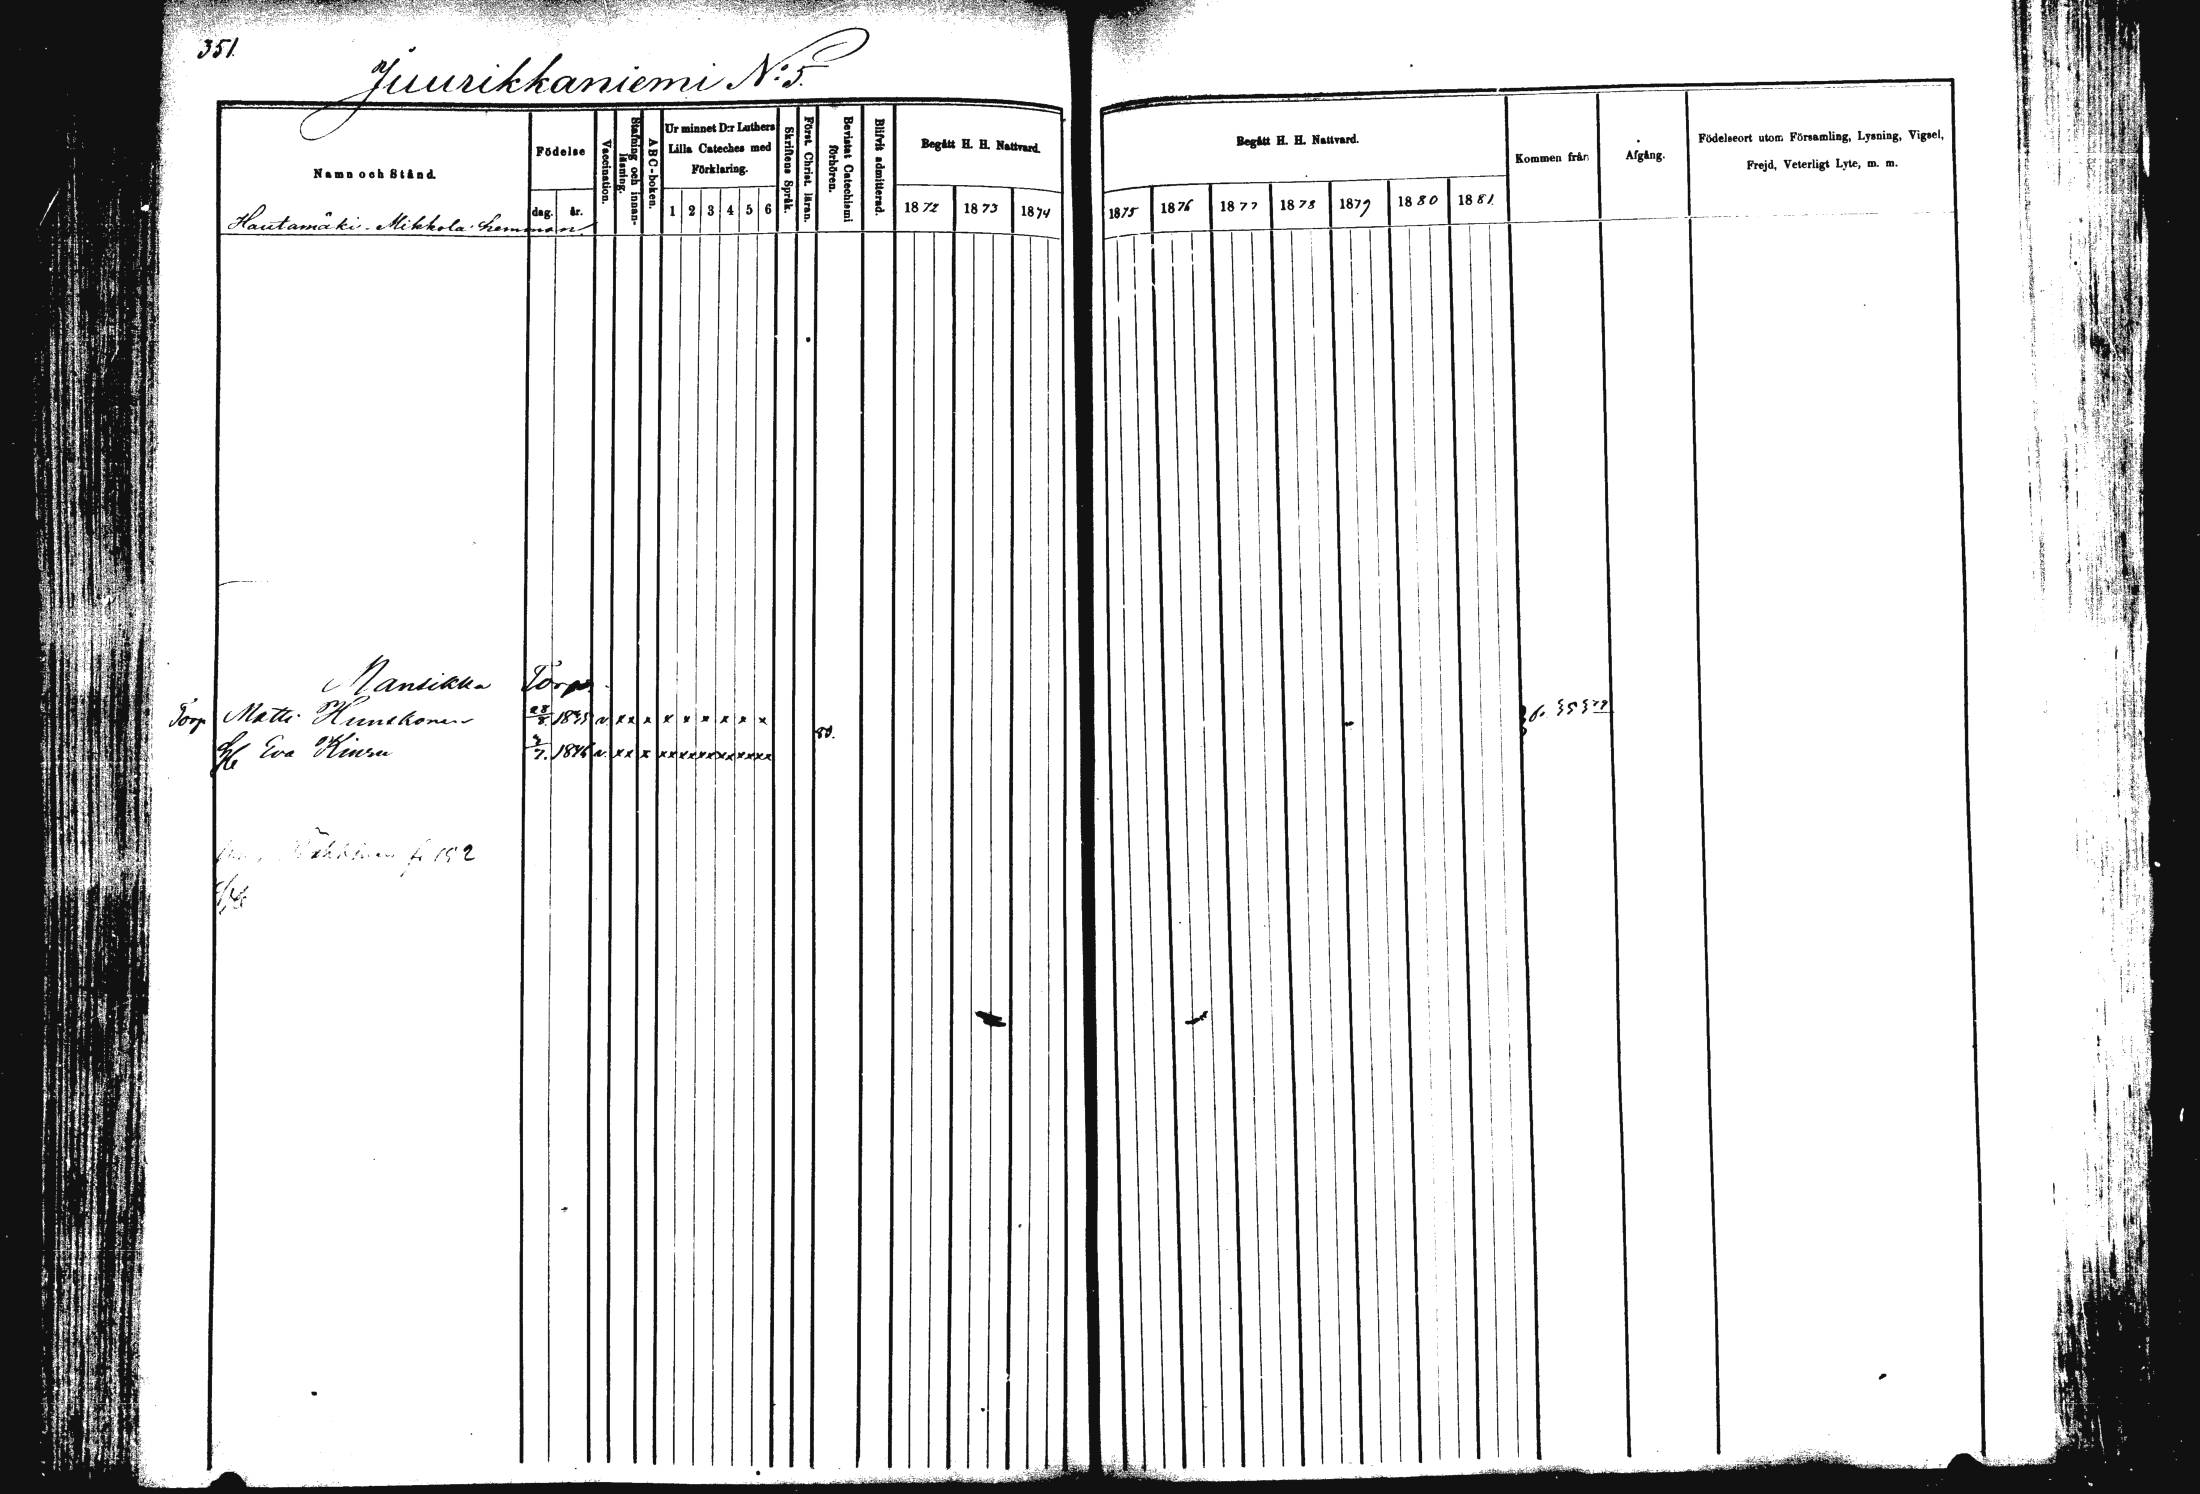 351.
Juurikkaniemi No: 5.
Namn och Stånd.
Födelse
dag. år.
Vaccination.
Stafning och innanläsning.
ABC-boken.
Ur minnet D:r Luthers Lilla Cateches med Förklaring.
1 2 3 4 5 6
Skriftens Språk.
Först. Christ. läran.
Bevistat Catechismi förhören.
Blifvit admitterad.
Begått H. H. Nattvard.
1872 1873 1874
Begått H. H. Nattvard.
1875 1876 1877 1878 1879 1880 1881
Kommen från
Afgång.
Födelseort utom Församling, Lysning, Vigsel,
Frejd, Veterligt Lyte, m. m.
Hautamäki - Mikkola hemman
Mansikka Torp.
Torp. Matts 28/8. 1845 v. xx x x x x x x x
80.
H Eva Kinsu 1846 v. xx x xx xx xx xx xx xx
f. 152